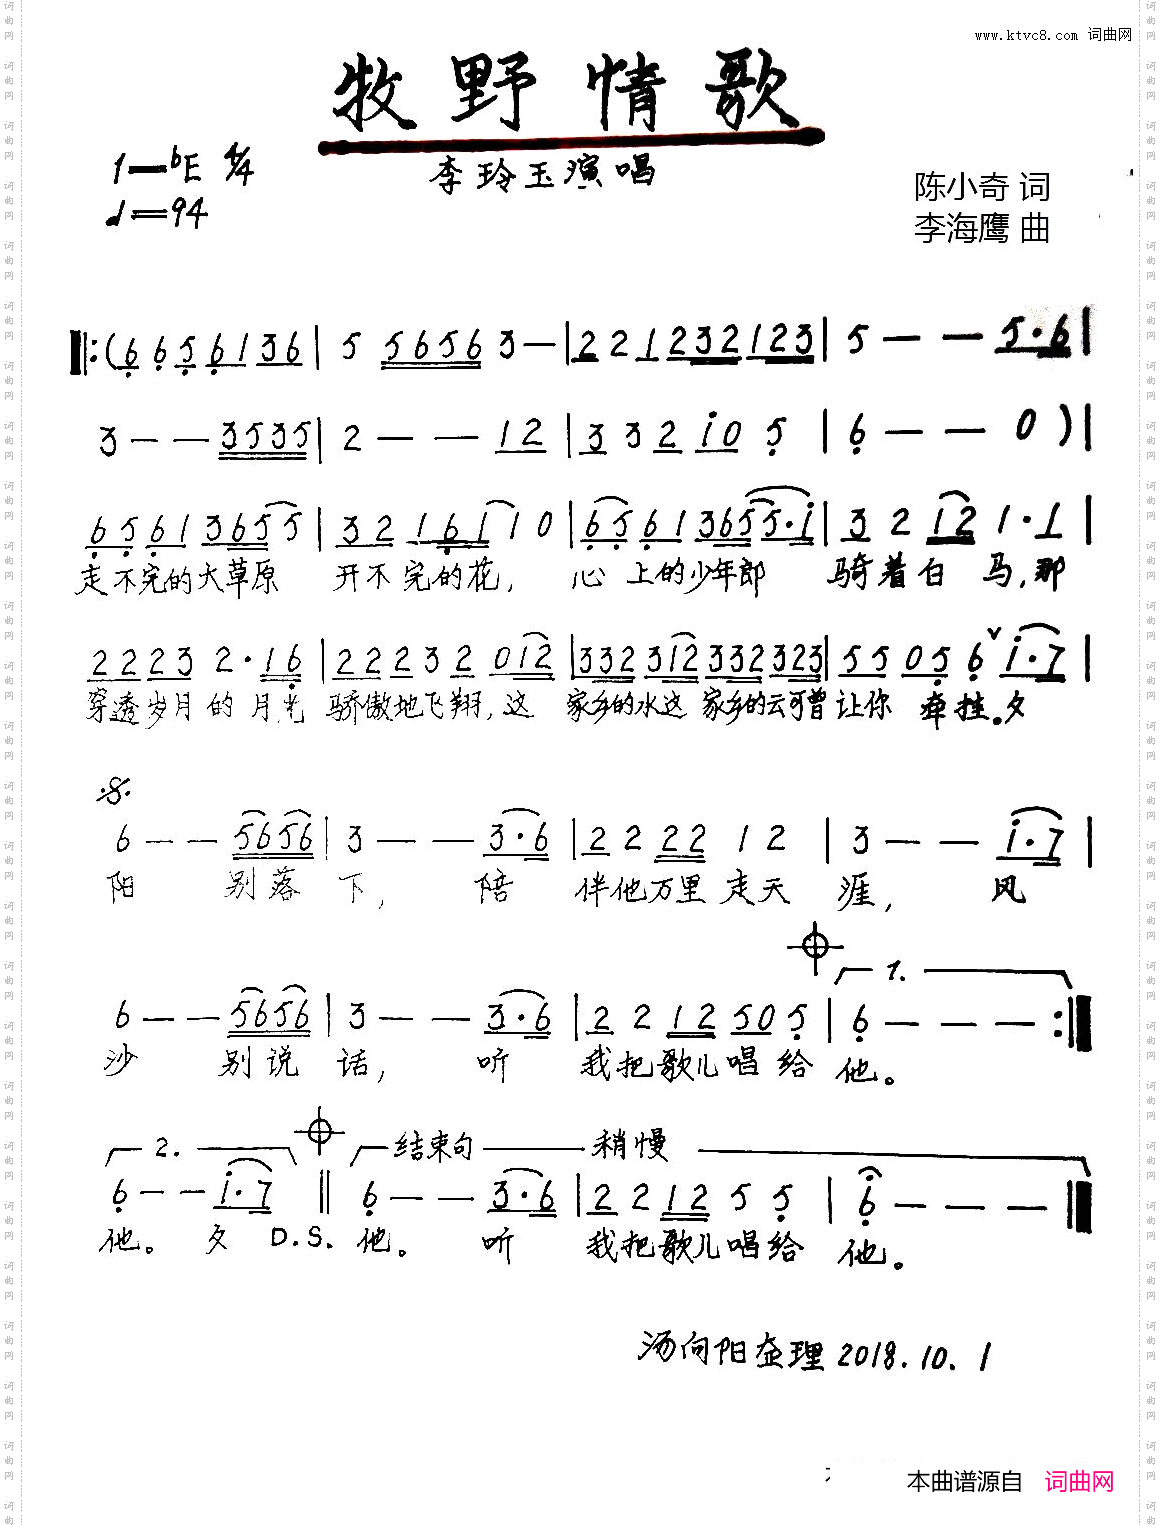 www.ktvc8.com 词曲网
牧野情歌
李玲玉演唱
1=bE 4/4
♩=94
陈小奇 词
李海鹰 曲
‖:(6 6 5 6 1 3 6 | 5 5 6 5 6 3 — | 2 2 1 2 3 2 1 2 3 | 5 — — 5·6 |
3 — — 3 5 3 5 | 2 — — 1 2 | 3 3 2 i 0 5 | 6 — — 0 ) |
6 5 6 1 3 6 5 5 | 3 2 1 6 1 1 0 | 6 5 6 1 3 6 5 5·i | 3 2 1 2 1·1 |
走不完的大草原 开不完的花, 心上的少年郎 骑着白马,那
2 2 2 3 2·1 6 | 2 2 2 3 2 0 1 2 | 3 3 2 3 1 2 3 3 2 3 2 3 | 5 5 0 5 6 ∨ i·7 |
穿透岁月的月光 骄傲地飞翔,这 家乡的水这 家乡的云可曾 让你 牵挂。夕
6 — — 5 6 5 6 | 3 — — 3·6 | 2 2 2 2 1 2 | 3 — — i·7 |
阳 别落 下, 陪 伴他万里走天 涯, 风
1.
6 — — 5 6 5 6 | 3 — — 3·6 | 2 2 1 2 5 0 5 | 6 — — — :‖
沙 别说 话, 听 我把歌儿唱给 他。
2. 结束句 稍慢
6 — — i·7 ‖ 6 — — 3·6 | 2 2 1 2 5 5 | 6 — — — ‖
他。 夕 D.S. 他。 听 我把歌儿唱给 他。
汤向阳整理2018.10.1
本曲谱源自 词曲网